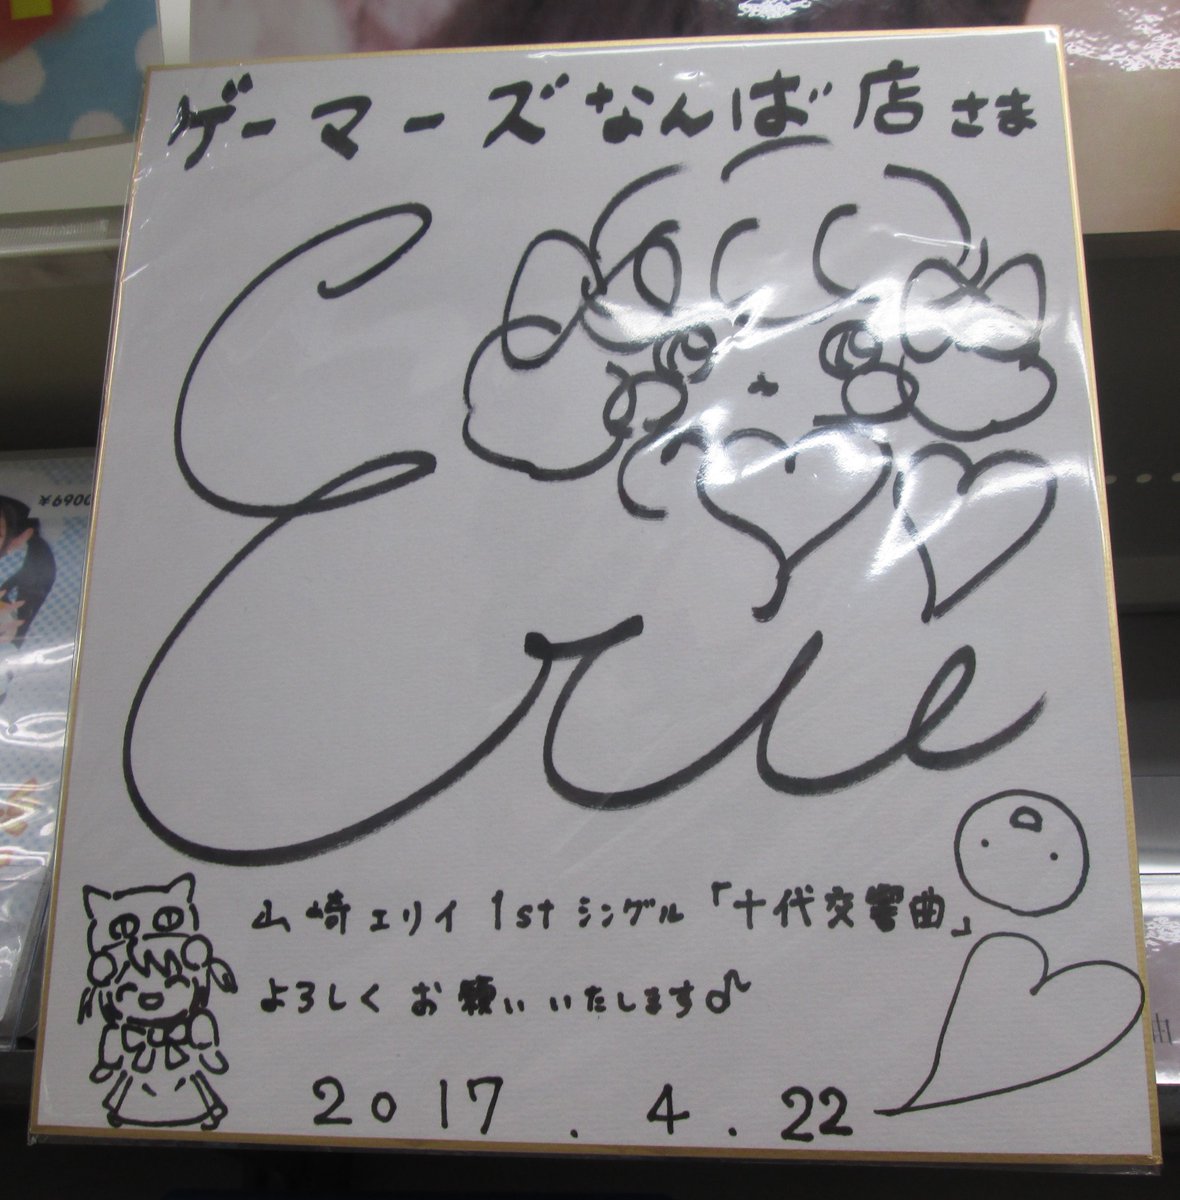 ゲーマーズなんば店さま
¥6900
山崎エリイ 1st シングル「十代交響曲」
よろしくお願いいたします♪
2017.4.22